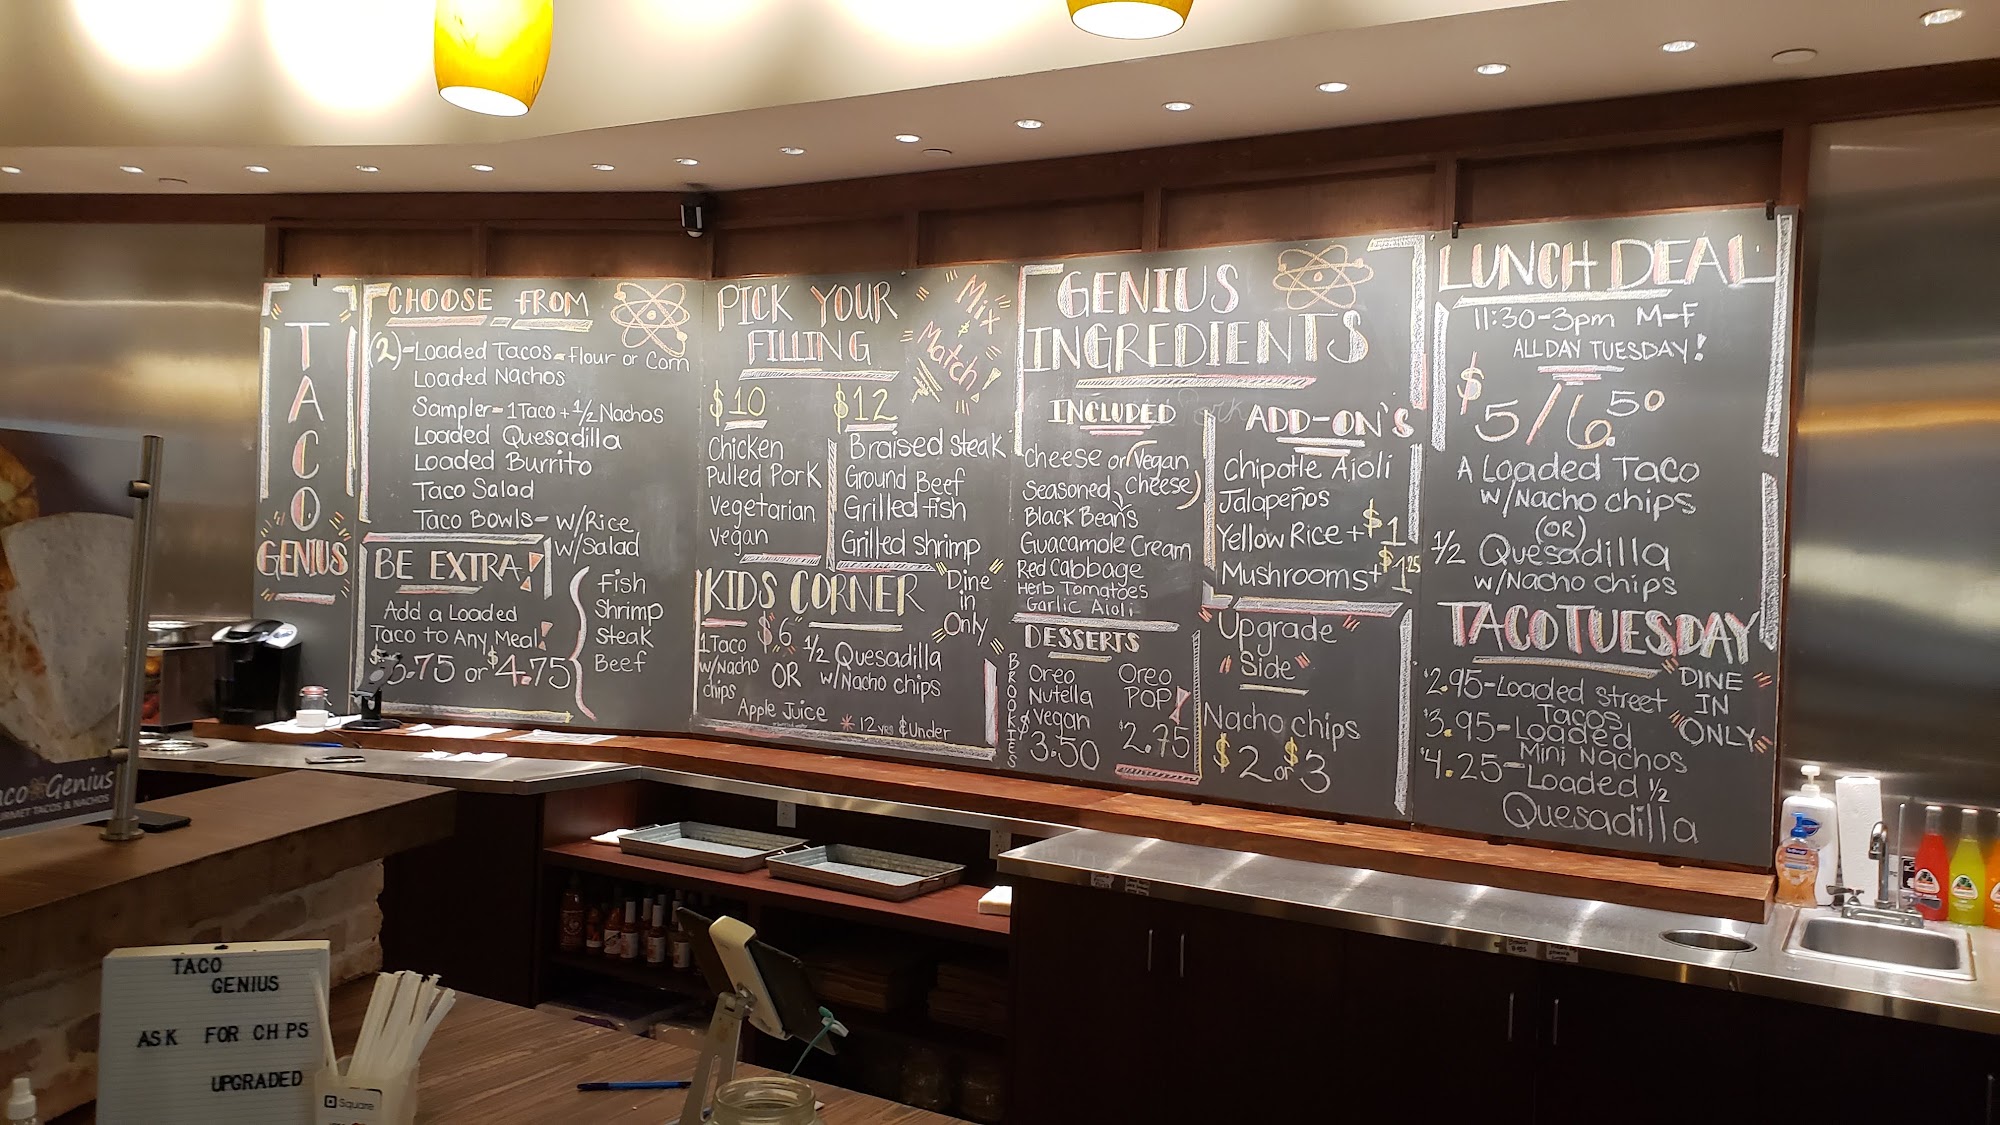 TACO
GENIUS
CHOOSE FROM
(2)-Loaded Tacos-Flour or Corn
Loaded Nachos
Sampler-1Taco+1/2 Nachos
Loaded Quesadilla
Loaded Burrito
Taco Salad
Taco Bowls-w/Rice
w/Salad
BE EXTRA!
Add a Loaded
Taco to Any Meal!
$3.75 or $4.75
Fish
Shrimp
Steak
Beef
PICK YOUR
FILLING
Mix
&
Match!
$10
Chicken
Pulled Pork
Vegetarian
Vegan
$12
Braised Steak
Ground Beef
Grilled fish
Grilled shrimp
KIDS CORNER
"Dine
in
Only"
$6
1 Taco
w/Nacho
chips
OR
1/2 Quesadilla
w/Nacho chips
Apple Juice
* 12 yrs & Under
GENIUS
INGREDIENTS
INCLUDED
Cheese or (Vegan
Cheese)
Seasoned
Black Beans
Guacamole Cream
Red Cabbage
Herb Tomatoes
Garlic Aioli
ADD-ON'S
Chipotle Aioli
Jalapeños
Yellow Rice +$1
Mushrooms+$1.25
DESSERTS
BROOKIES
Oreo
Nutella
Vegan
$3.50
Oreo
POP!
$2.75
"Upgrade"
"Side"
Nacho chips
$2 or $3
LUNCH DEAL
11:30-3pm M-F
ALL DAY TUESDAY!
$5/6.50
A Loaded Taco
w/Nacho chips
(OR)
1/2 Quesadilla
w/Nacho chips
TACO TUESDAY
$2.95-Loaded Street
Tacos
$3.95-Loaded
Mini Nachos
$4.25-Loaded 1/2
Quesadilla
"DINE
IN
ONLY"
aco Genius
URMET TACOS & NACHOS
TACO
GENIUS
ASK FOR CH PS
UPGRADED
Square